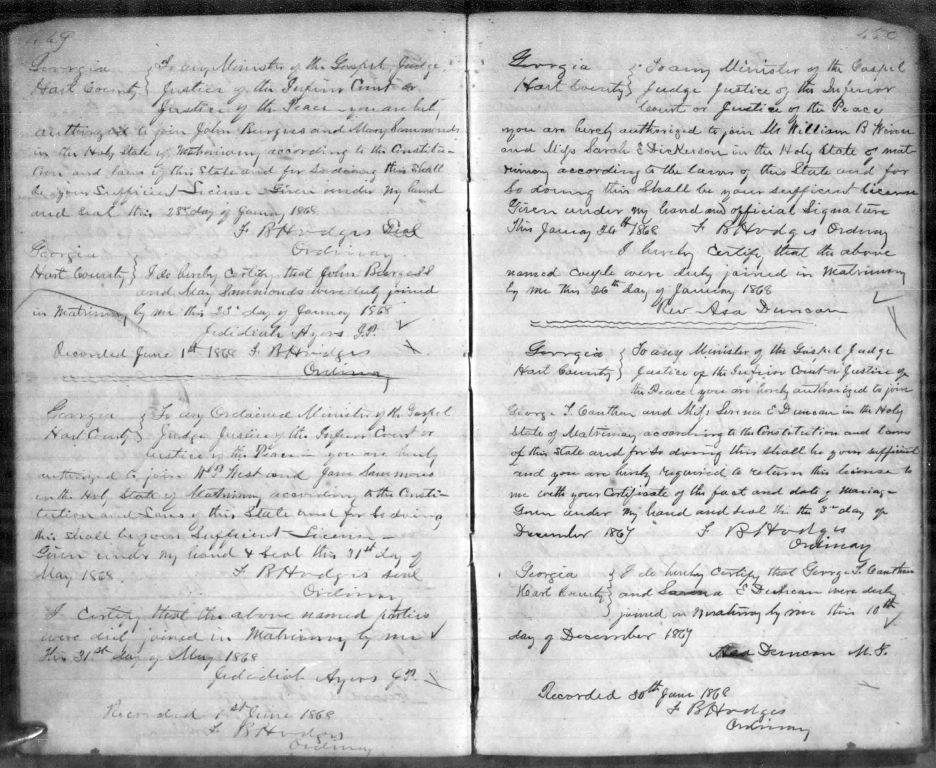 469
Georgia } To any Minister of the Gospel Judge
Hart County } Justice of the Inferior Court or
Justice of the Peace - you are hereby
authorized to join John Burgess and Mary Sammonds
in the Holy State of Matrimony according to the Constitu-
tion and laws of this State and for So doing this Shall
be your Sufficient License Given under My hand
and seal this 23d day of January 1868
F B Hodges Seal
Ordinary
Georgia
Hart County } I do hereby Certify that John Burgess
and May Sammonds were duly joined
in Matrimony by me this 23d day of January 1868
Jedidiah Ayers J.P.
Recorded June 1st 1868 F B Hodges
Ordinary
Georgia } To any Ordained Minister of the Gospel
Hart County } Judge Justice of the Inferior Court or
Justice of the Peace - you are hereby
authorized to join West and Jane Sammons
in the Holy State of Matrimony according to the Consti-
tution and Laws of this State and for So doing
this shall be your Sufficient License -
Given under My hand & Seal this 31st day of
May 1868. F B Hodges seal
Ordinary
I Certify that the above named parties
were duly joined in Matrimony by me
this 31st day of May 1868
Jedidiah Ayers J.P.
Recorded 1st June 1868
F B Hodges
Ordinary
450
Georgia } To any Minister of the Gospel
Hart County } Judge Justice of the Inferior
Court or Justice of the Peace
you are hereby authorized to join Mr William B Winn
and Miss Sarah E Dickerson in the Holy State of mat-
rimony according to the laws of this State and for
So doing this Shall be your sufficient license
Given under my hand and official Signature
This January 26th 1868 F B Hodges Ordinary
I hereby Certify that the above
named Couple were duly joined in Matrimony
by me this 26th day of January 1868
Rev Asa Duncan
Georgia } To any Minister of the Gospel Judge
Hart County } Justice of the Inferior Court or Justice of
the Peace you are hereby authorized to join
George T. Cauthan and Miss E Duncan in the Holy
State of Matrimony according to the Constitution and laws
of this State and for So doing this shall be your sufficient
and you are hereby required to return this license to
me with your Certificate of the fact and date of marriage
Given under my hand and seal this the 3rd day of
December 1867 F B Hodges
Ordinary
Georgia } I do hereby Certify that George T. Cauthan
Hart County } and E Duncan were duly
joined in Matrimony by me this 10th
day of December 1867
Asa Duncan M.G.
Recorded 30th June 1868
F B Hodges
Ordinary